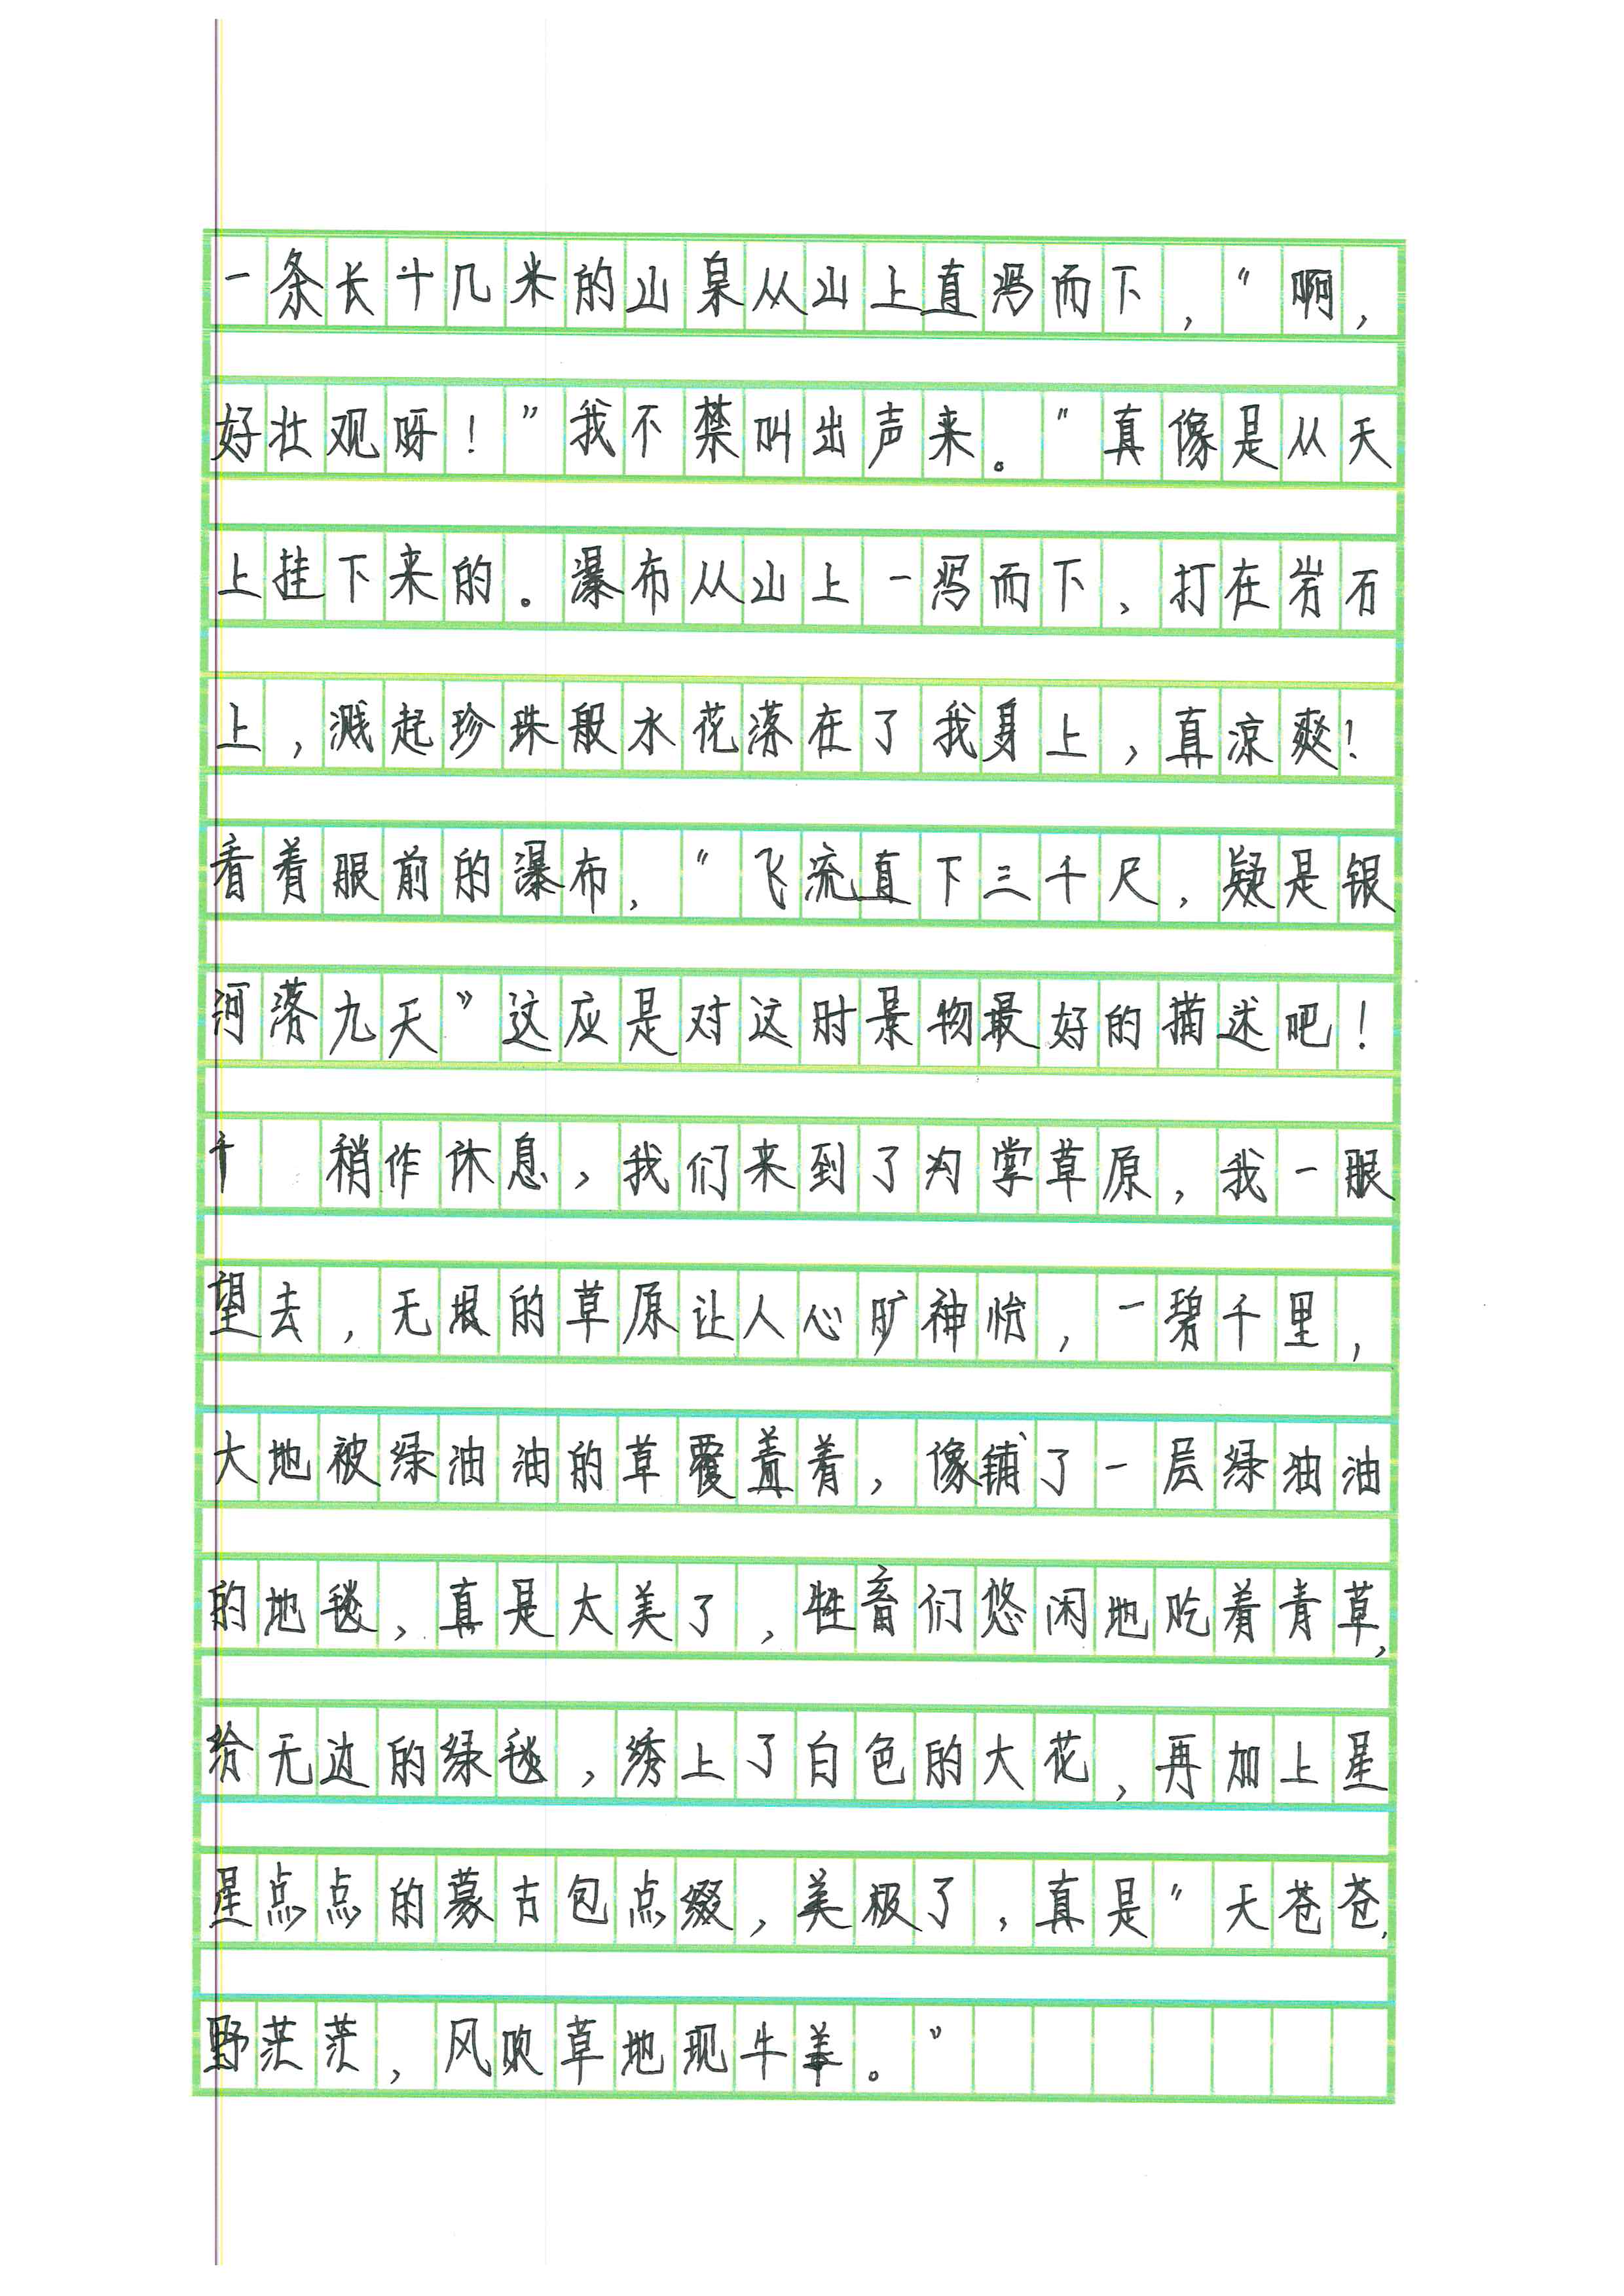 一条长十几米的山泉从山上直泻而下，“啊，
好壮观呀！”我不禁叫出声来。“真像是从天
上挂下来的。瀑布从山上一泻而下，打在岩石
上，溅起珍珠般水花落在了我身上，真凉爽！
看着眼前的瀑布，“飞流直下三千尺，疑是银
河落九天”这应是对这时景物最好的描述吧！
稍作休息，我们来到了沟掌草原，我一眼
望去，无垠的草原让人心旷神怡，一碧千里，
大地被绿油油的草覆盖着，像铺了一层绿油油
的地毯，真是太美了，牲畜们悠闲地吃着青草，
给无边的绿毯，绣上了白色的大花，再加上星
星点点的蒙古包点缀，美极了，真是“天苍苍，
野茫茫，风吹草地现牛羊。”